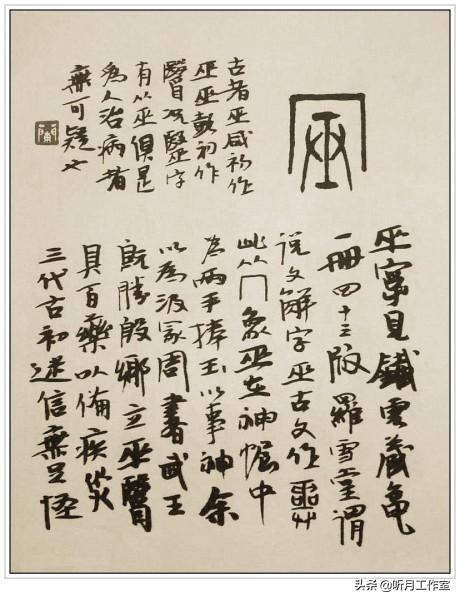 巫
巫見鐵雲藏龜
一冊四十三版羅雪堂謂
說文解字巫古文作
此从冂象巫在神幄中
為兩手捧玉以事神余
以為汲冢周書武王
既勝殷鄉立巫醫
具百藥以備疾災
三代古初迷信無足怪
古者巫咸初作
巫巫彭初作
醫况毉字
有从巫俱是
為人治病者
無可疑也
头条 @听月工作室